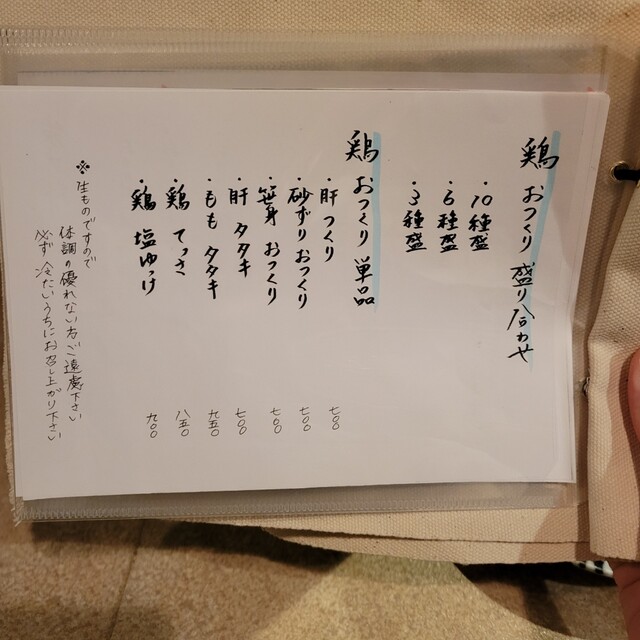 鶏 おつくり 盛り合わせ
・10種盛
・6種盛
・3種盛
鶏 おつくり 単品
・肝 つくり 七〇〇
・砂ずり おつくり 七〇〇
・笹身 おつくり 七〇〇
・肝 タタキ 七〇〇
・もも タタキ 九五〇
・鶏 てっさ 八五〇
・鶏 塩ゆっけ 九〇〇
※ 生ものですので
体調の優れない方ご遠慮下さい
必ず 冷たいうちにお召し上がり下さい